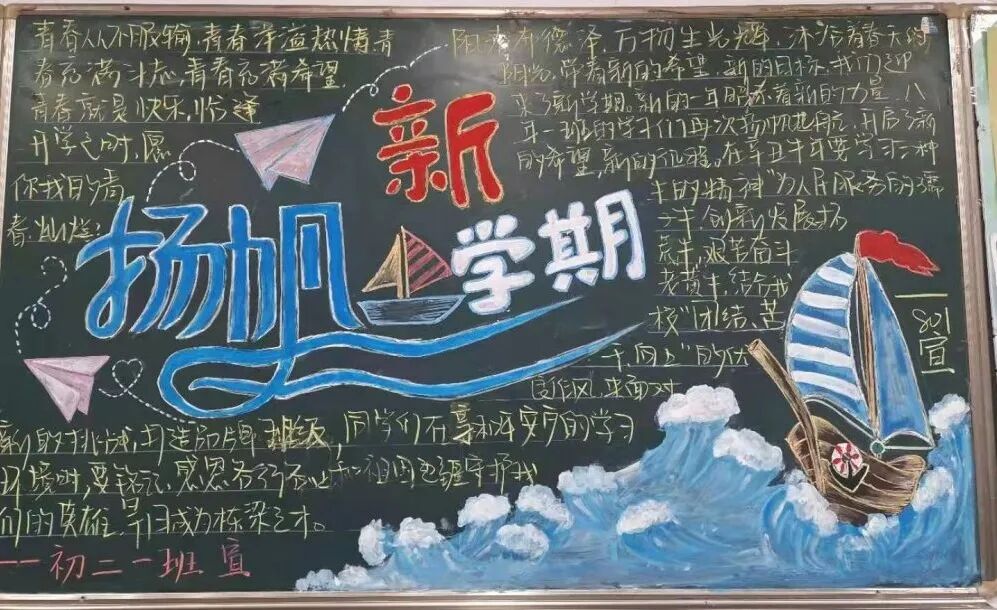 青春从不服输,青春洋溢热情,青
春充满斗志,青春充满希望,
青春就是快乐,恰逢
开学之时,愿
你我的青
春,灿烂!
扬帆
新
学期
阳春布德泽,万物生光辉,沐浴着春天的
阳光,带着新的希望,新的目标,我们迎
来了新学期,新的一年昭示着新的力量,八
年一班的学子们再次扬帆起航,开启了新
的希望,新的征程,在辛丑牛年要学习三种
牛的精神"为人民服务的孺
子牛,创新发展拓
荒牛,艰苦奋斗
老黄牛,结合我
校"团结、苦
干、向上"的优
良作风,来面对
新的挑战,打造品牌班级,同学们在享和平安宁的学习
环境时,要铭记,感恩各行各业和祖国边疆守护我
们的英雄,早日成为栋梁之才。
——初二一班 宣
801
宣